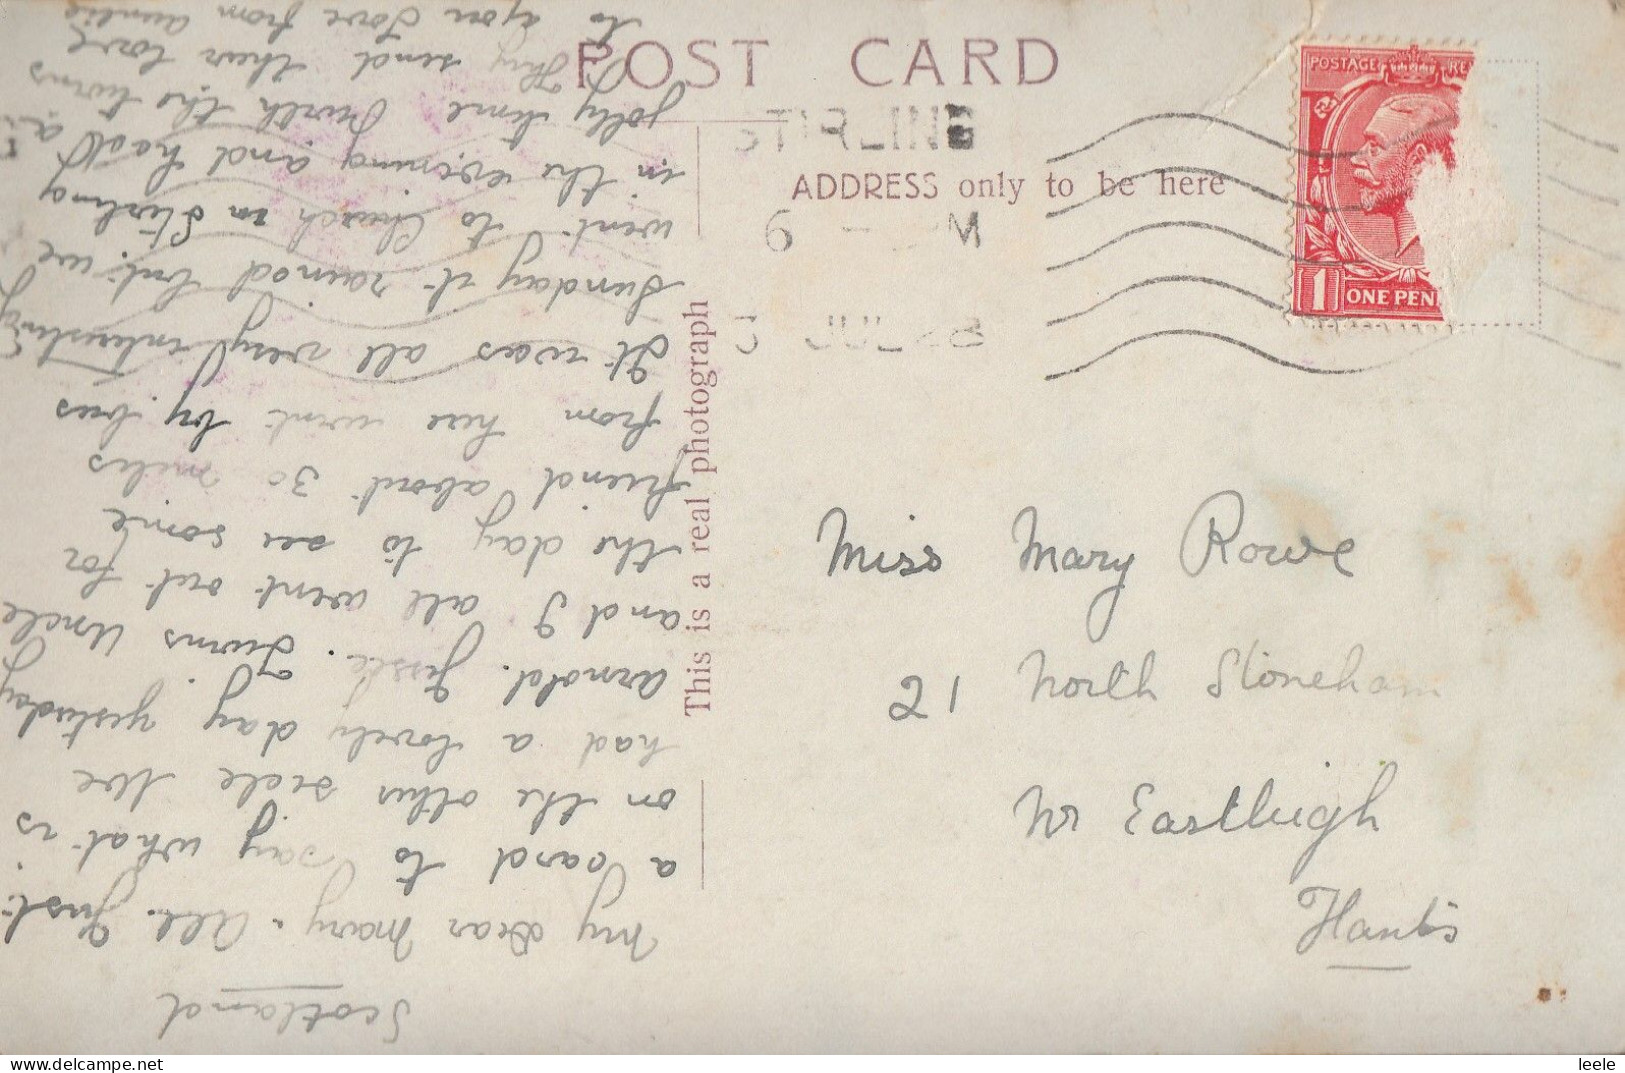 POST CARD
STIRLING
ADDRESS only to be here
6 M
JUL 28
POSTAGE RE
1 ONE PEN
This is a real photograph
Miss Mary Rowe
21 North Stoneham
Nr Eastleigh
Hants
Scotland
My Dear Mary & All. Just
a card to say what is
on the other side We
had a lovely day yesterday
Arnold. Jessie. Twins Uncle
and I all went out for
the day to see some
friend about 30 miles
from here went by bus
It was all very interesting
Sunday it rained but we
went to Church in Stirling
in the evening and had a
jolly time with the twins
They send their love
to you Love from Auntie
leele